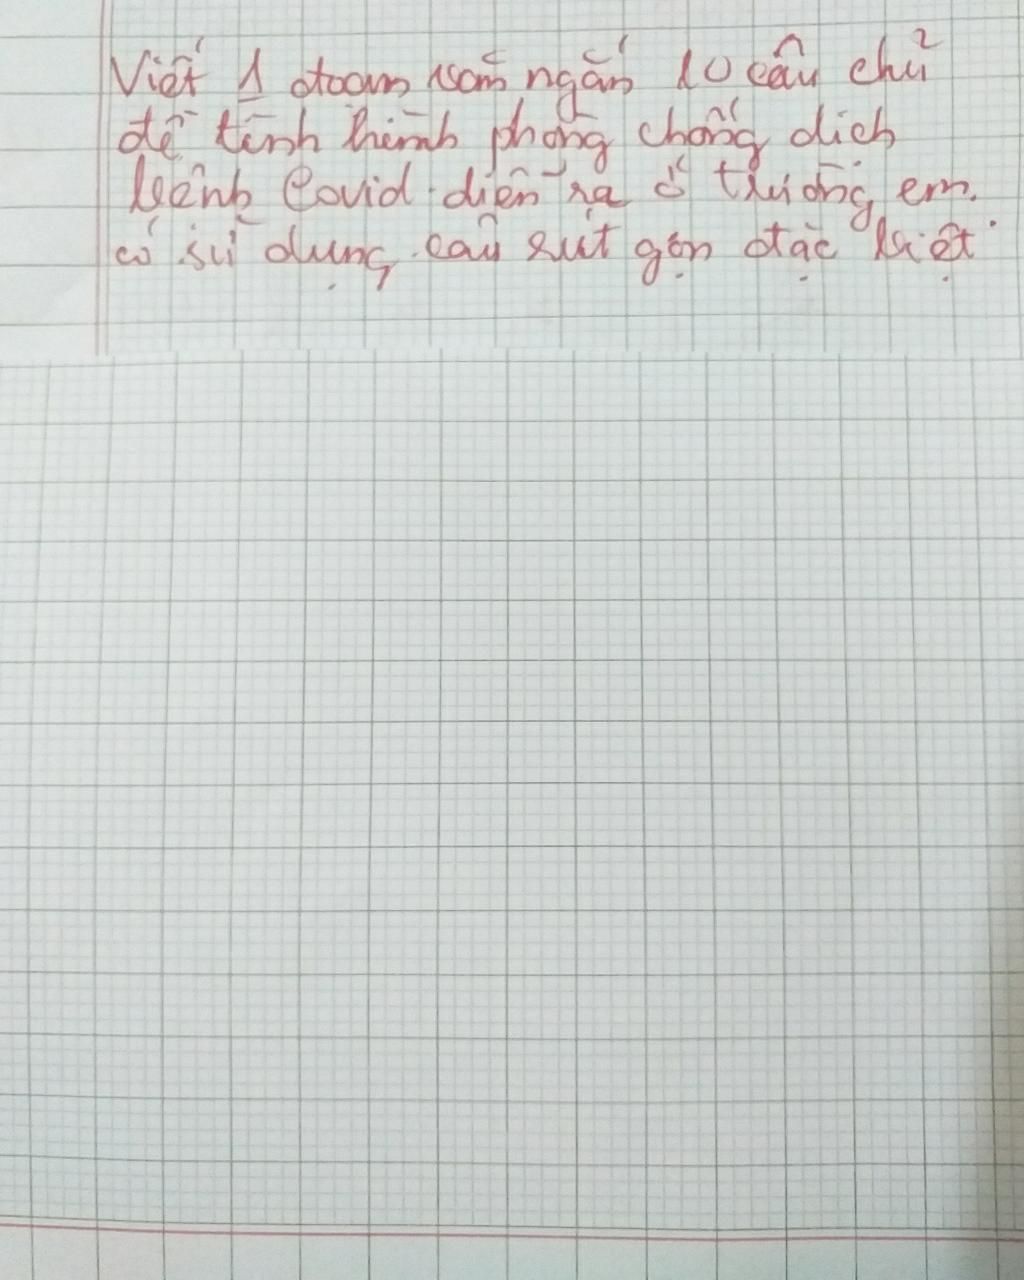 Viết 1 đoạn văn ngắn 10 câu chủ
đề tình hình phòng chống dịch
bệnh Covid diễn ra ở trường em.
có sử dụng câu rút gọn đặc biệt